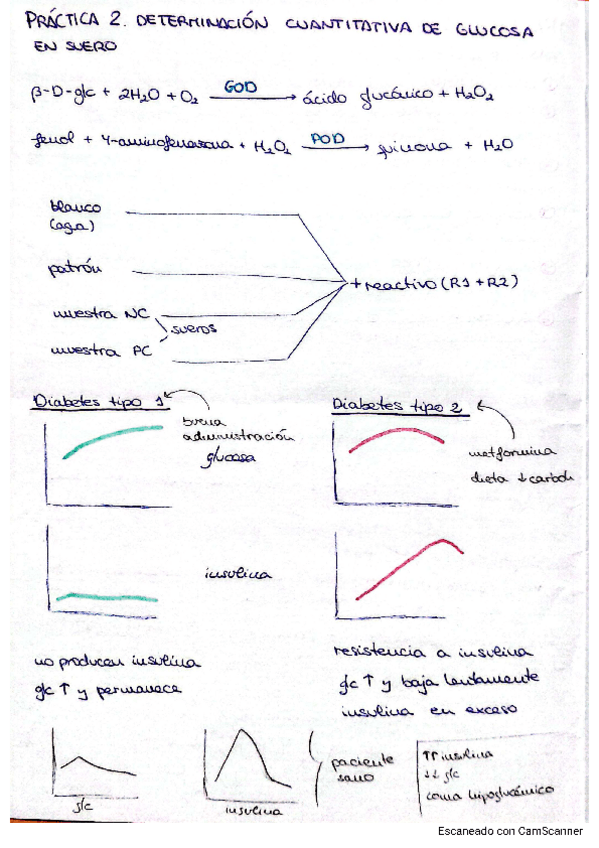 PRÁCTICA 2. DETERMINACIÓN CUANTITATIVA DE GLUCOSA
EN SUERO
β-D-glc + 2H₂O + O₂ GOD → ácido glucónico + H₂O₂
fenol + 4-aminofenazona + H₂O₂ POD → quinona + H₂O
blanco
(agua)
patrón
muestra NC
sueros
muestra PC
+ reactivo (R1 + R2)
Diabetes tipo 1
buena
administración
glucosa
Diabetes tipo 2
metformina
dieta ↓ carboh
insulina
no producen insulina
glc ↑ y permanece
resistencia a insulina
glc ↑ y baja lentamente
insulina en exceso
glc
insulina
paciente
sano
↑↑ insulina
↓↓ glc
coma hipoglucémico
Escaneado con CamScanner